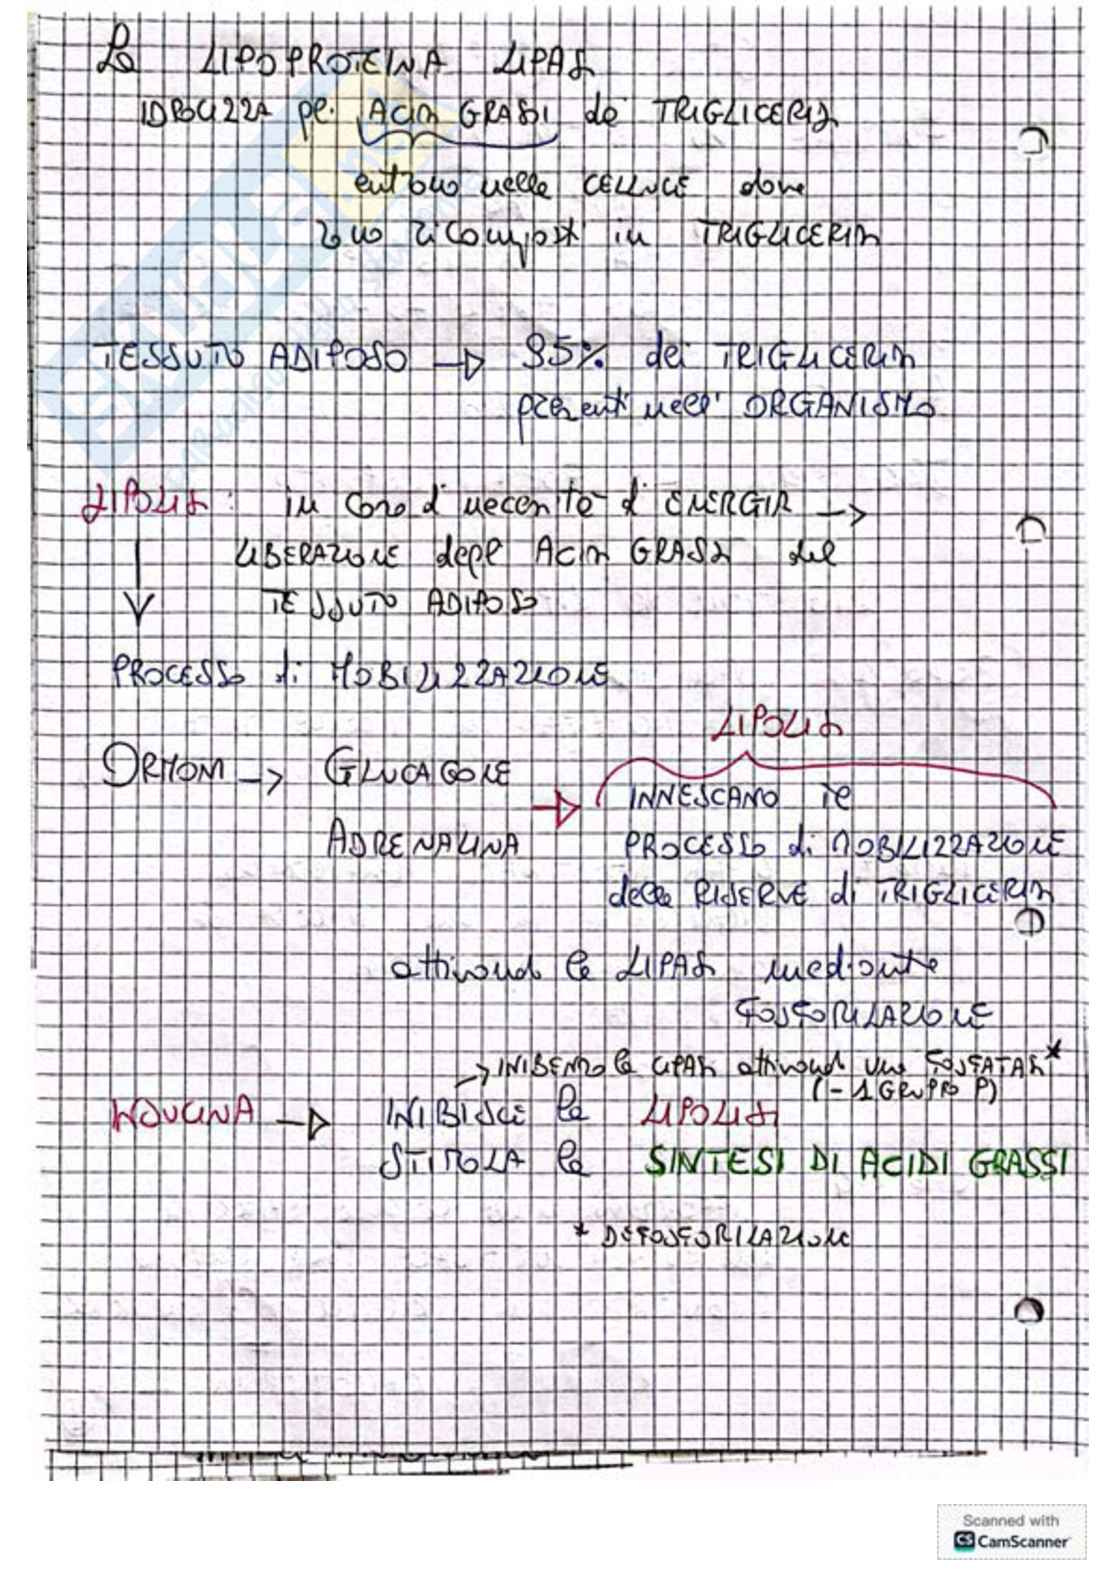 La LIPOPROTEINA LIPASI
IDROLIZZA gli ACIDI GRASSI dei TRIGLICERIDI
entrano nelle CELLULE dove
sono ricomposti in TRIGLICERIDI
TESSUTO ADIPOSO → 95% dei TRIGLICERIDI
presenti nell' ORGANISMO
LIPOLISI: in caso di necessità di ENERGIA →
LIBERAZIONE degli ACIDI GRASSI dal
TESSUTO ADIPOSO
PROCESSO di MOBILIZZAZIONE
LIPOLISI
ORMONI → GLUCAGONE
ADRENALINA
INNESCANO il
PROCESSO di MOBILIZZAZIONE
delle RISERVE di TRIGLICERIDI
attivando le LIPASI mediante
FOSFORILAZIONE
→ INIBENDO le LIPASI attivando una FOSFATASI*
(- 1 GRUPPO P)
INSULINA → INIBISCE la LIPOLISI
STIMOLA la SINTESI DI ACIDI GRASSI
* DEFOSFORILAZIONE
Scanned with
CS CamScanner